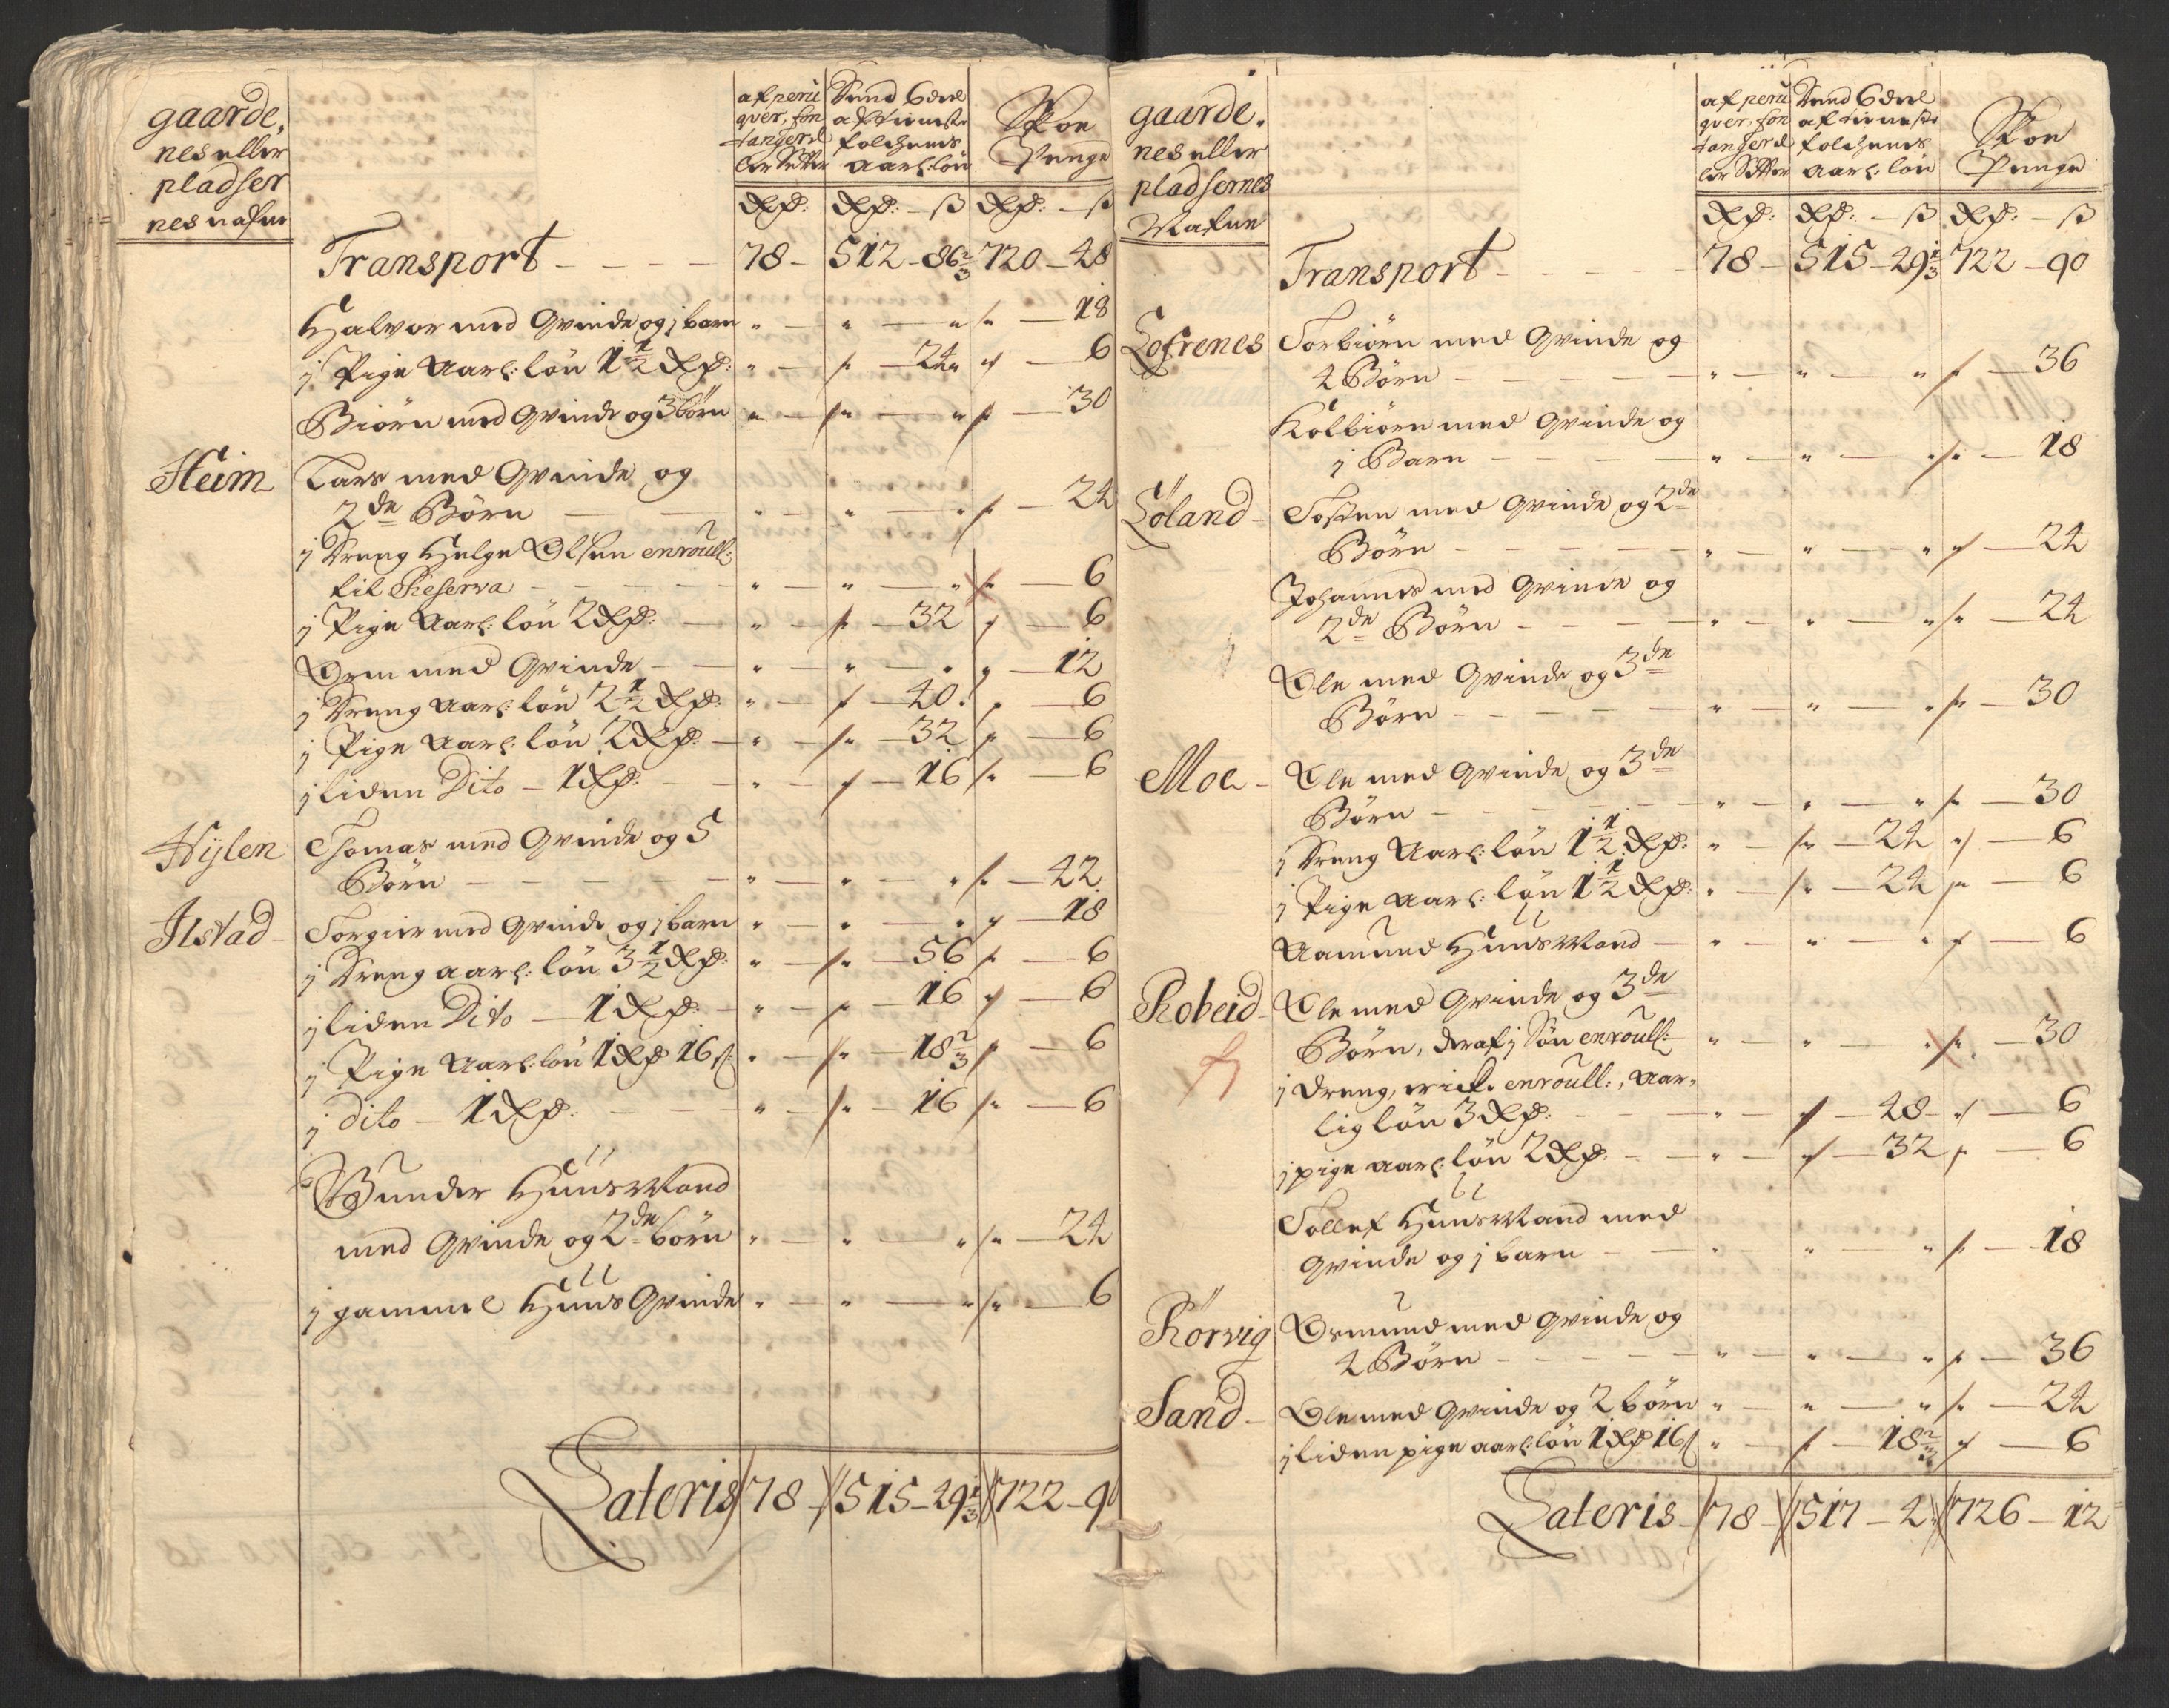 gaarde,
nes eller
pladser
nes nafne
af peru
qver, fon
tanger el
ler Setter
6 deel
af tieneste
folchenes
aarl: løn
Skoe
Penge
Rd: Rd: – ß Rd: – ß
Transport – – – – 78 – 512 – 86 2/3 720 – 48
Halvor med Qvinde og j barn " – " – " " – 18
j Pige Aarl: løn 1 1/2 Rd: " – " – 24 " – 6
Biørn med Qvinde og 3 børn " – " – " " – 30
Heim Lars med Qvinde og
2de Børn – – " – " – " " – 24
j Dreng Helge Olsen enroull:
til Reserva – – – – " – " – " " – 6
j Pige Aarl: løn 2 Rd: – " – " – 32 " – 6
Orm med Qvinde – – " – " – " " – 12
j Dreng Aarl: løn 2 1/2 Rd: " – " – 40 " – 6
j Pige Aarl: løn 2 Rd: – " – " – 32 " – 6
j liden Dito – 1 Rd: – – " – " – 16 " – 6
Hylen Thomas med Qvinde og 5
Børn – – – – – " – " – " " – 42
Ilstad – Torgier med Qvinde og j barn " – " – " " – 18
j Dreng aarl: løn 3 1/2 Rd: " – " – 56 " – 6
j liden Dito – 1 Rd: – " – " – 16 " – 6
j Pige Aarl: løn 1 Rd 16 ß: " – " – 18 2/3 " – 6
j dito – 1 Rd: – – " – " – 16 " – 6
Gunder Huusmand
med Qvinde og 2de børn " – " – " " – 24
j gammel Huus Qvinde " – " – " " – 6
Lateris 78 – 515 – 29 1/3 722 – 90
gaarde.
nes eller
pladsernes
Nafne
af peru
qver, fon
tanger el
ler Setter
6 deel
af tieneste
folchenes
aarl: løn
Skoe
Penge
Rd: Rd: – ß Rd: – ß
Transport – – – – 78 – 515 – 29 1/3 722 – 90
Lofrenes Torbiørn med Qvinde og
4 Børn – – – – – " – " – " " – 36
Kolbiørn med Qvinde og
j Barn – – – – " – " – " " – 18
Löland – Tosten med Qvinde og 2de
Børn – – – – – " – " – " " – 24
Johannes med Qvinde og
2de Børn – – – – " – " – " " – 24
Ole med Qvinde og 3de
Børn – – – – – " – " – " " – 30
Moe – Ole med Qvinde og 3de
Børn – – – – – " – " – " " – 30
j Dreng Aarl: løn 1 1/2 Rd: " – " – 24 " – 6
j Pige Aarl: løn 1 1/2 Rd: " – " – 24 " – 6
Aamund Huusmand – " – " – " " – 6
Robeid – Ole med Qvinde og 3de
Børn, deraf j Søn enroull: " – " – " " – 30
j dreng, enroull:, Aar-
lig løn 3 Rd: – – – " – " – 48 " – 6
j pige aarl: løn 2 Rd: – – " – " – 32 " – 6
Tollef Huusmand med
Qvinde og j barn – – " – " – " " – 18
Rörvig Osmund med Qvinde og
4 Børn – – – – – " – " – " " – 36
Sand – Ole med Qvinde og 2 børn " – " – " " – 24
j liden pige aarl: løn 1 Rd 16 ß " – " – 18 2/3 " – 6
Lateris – 78 – 517 – 4 726 – 12